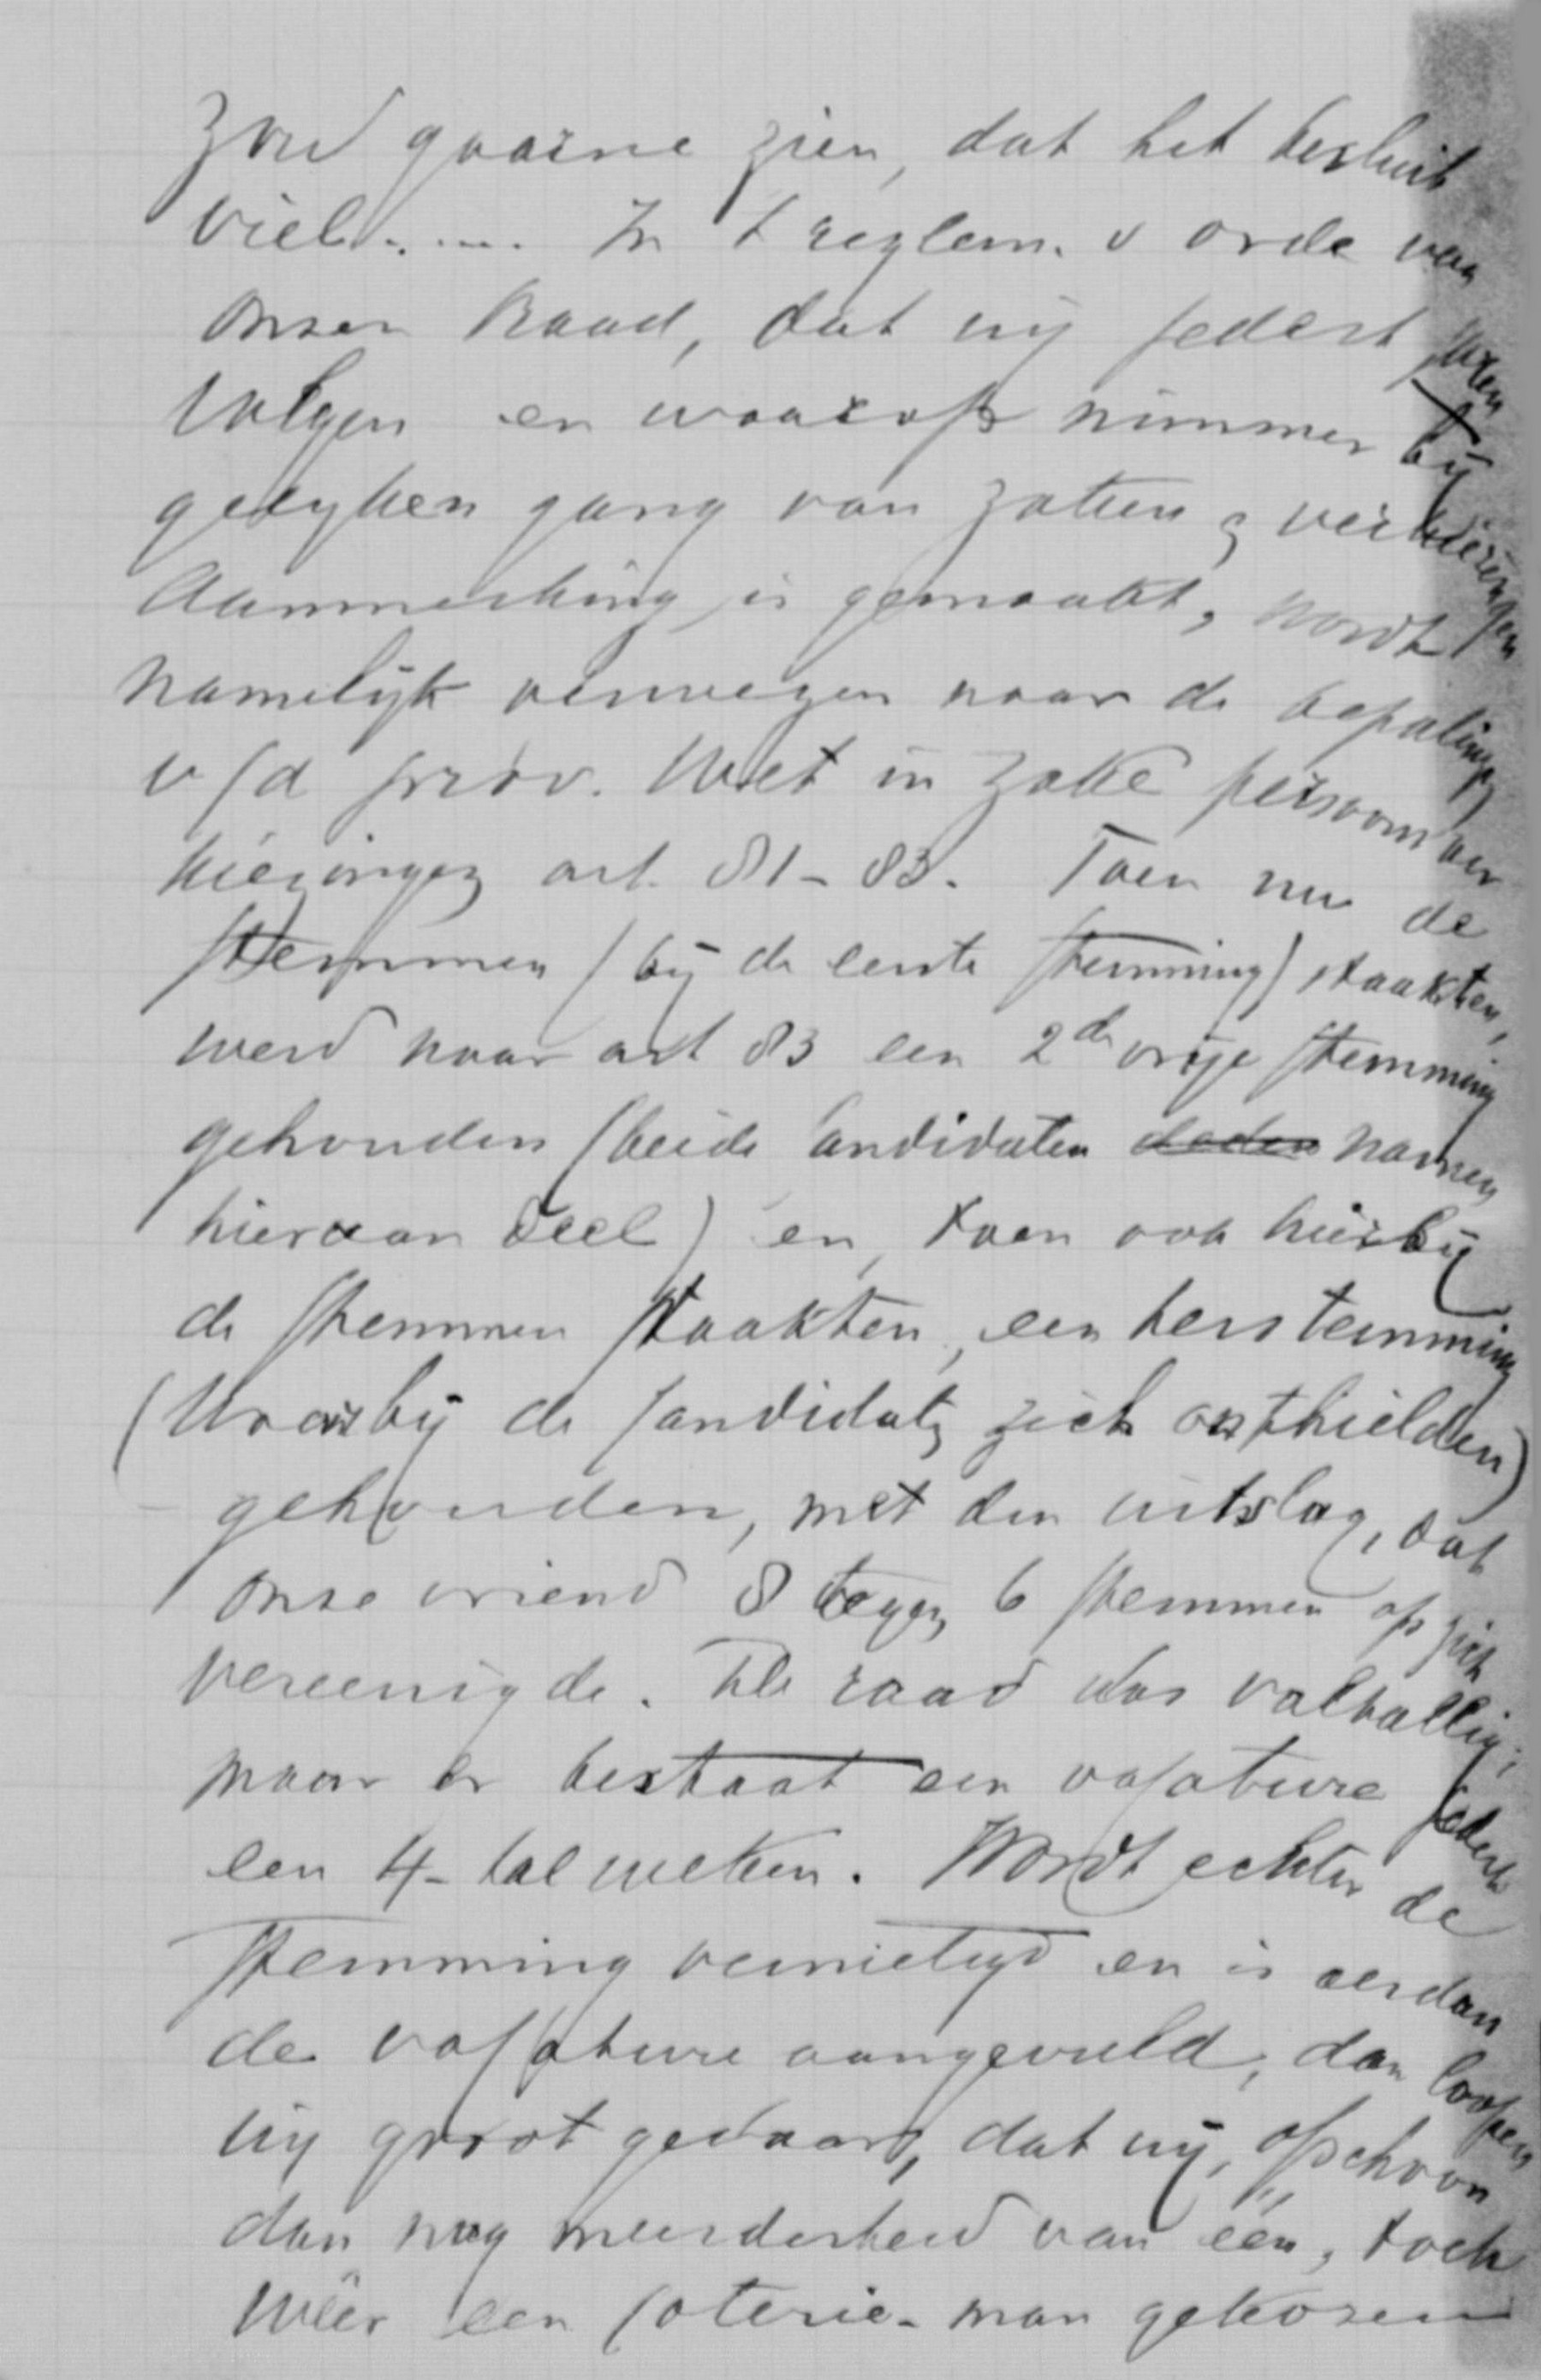 zou gaarne zien, dat het besluit
viel..... In 't reglem. v orde van
onzen Raad, dat wij sedert jaren
volgen en waarop nimmer bij
gelijken gang van zaken
aanmerking is gemaakt, wordt
namelijk verwezen naar de bepalingen
v/d prov. Wet in zake persoonsver
kiezingen art. 81-83. Toen nu de
stemmen (bij de eerste stemming) staakten,
werd naar art 83 een 2de vrije stemming
gehouden (beide candidaten deden namen
hieraan deel) en, toen ook hierbij
de stemmen staakten, een herstemming
(Waarbij de candidaten zich onthielden)
gehouden, met den uitslag, dat
onze vriend 8 tegen 6 stemmen op zich
vereenigde. De raad was voltallig;
maar er bestaat een vacature sedert
een 4-tal weken. Wordt echter de
stemming vernietigd en is eerdan
de vacature aangevuld, dan loopen
wij groot gevaar, dat wij, ofschoon
dan nog meerderheid van één, toch
wéér een coterie-man gekozen